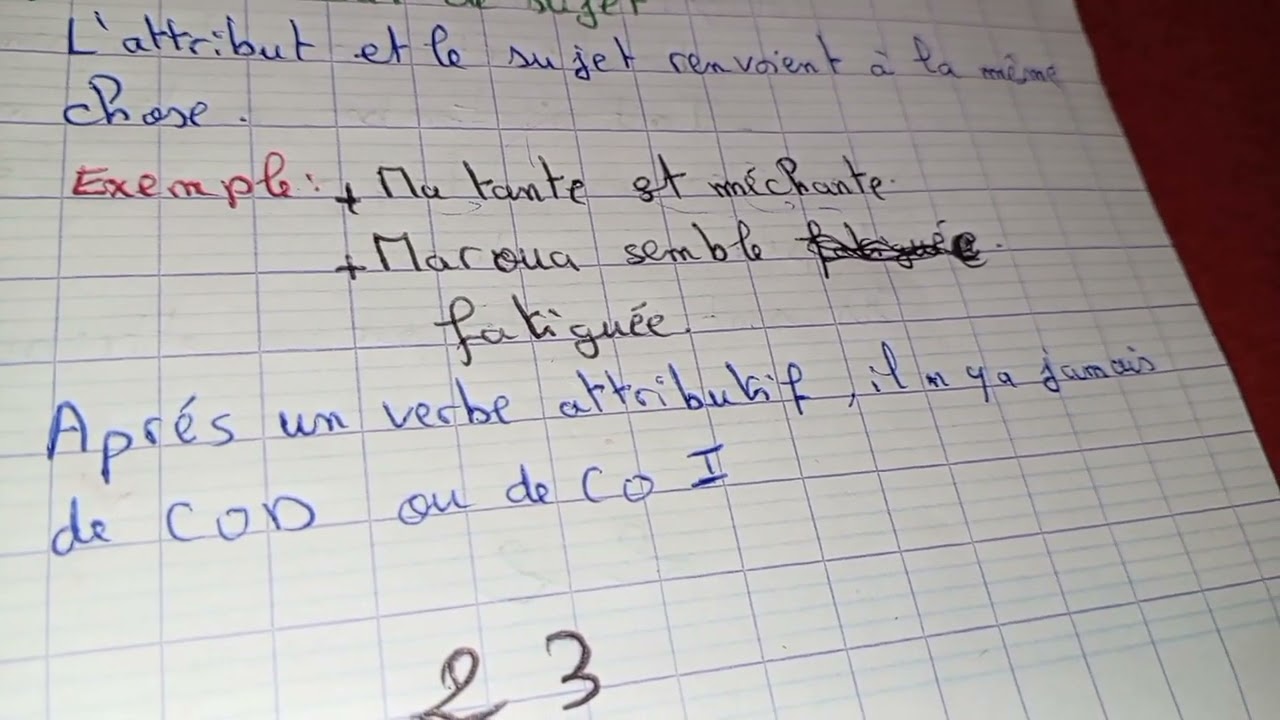 sujet
L'attribut et le sujet renvoient à la même
chose.
Exemple: + Ma tante est méchante.
+ Maroua semble fatiguée.
fatiguée.
Aprés un verbe attributif, il n y a jamais
de COD ou de COI
23